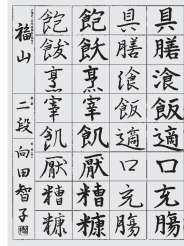 具膳飡飯適口充腸
具膳飡飯適口充腸
飽飫烹宰飢厭糟糠
飽飫烹宰飢厭糟糠
福山 二段 向田智子